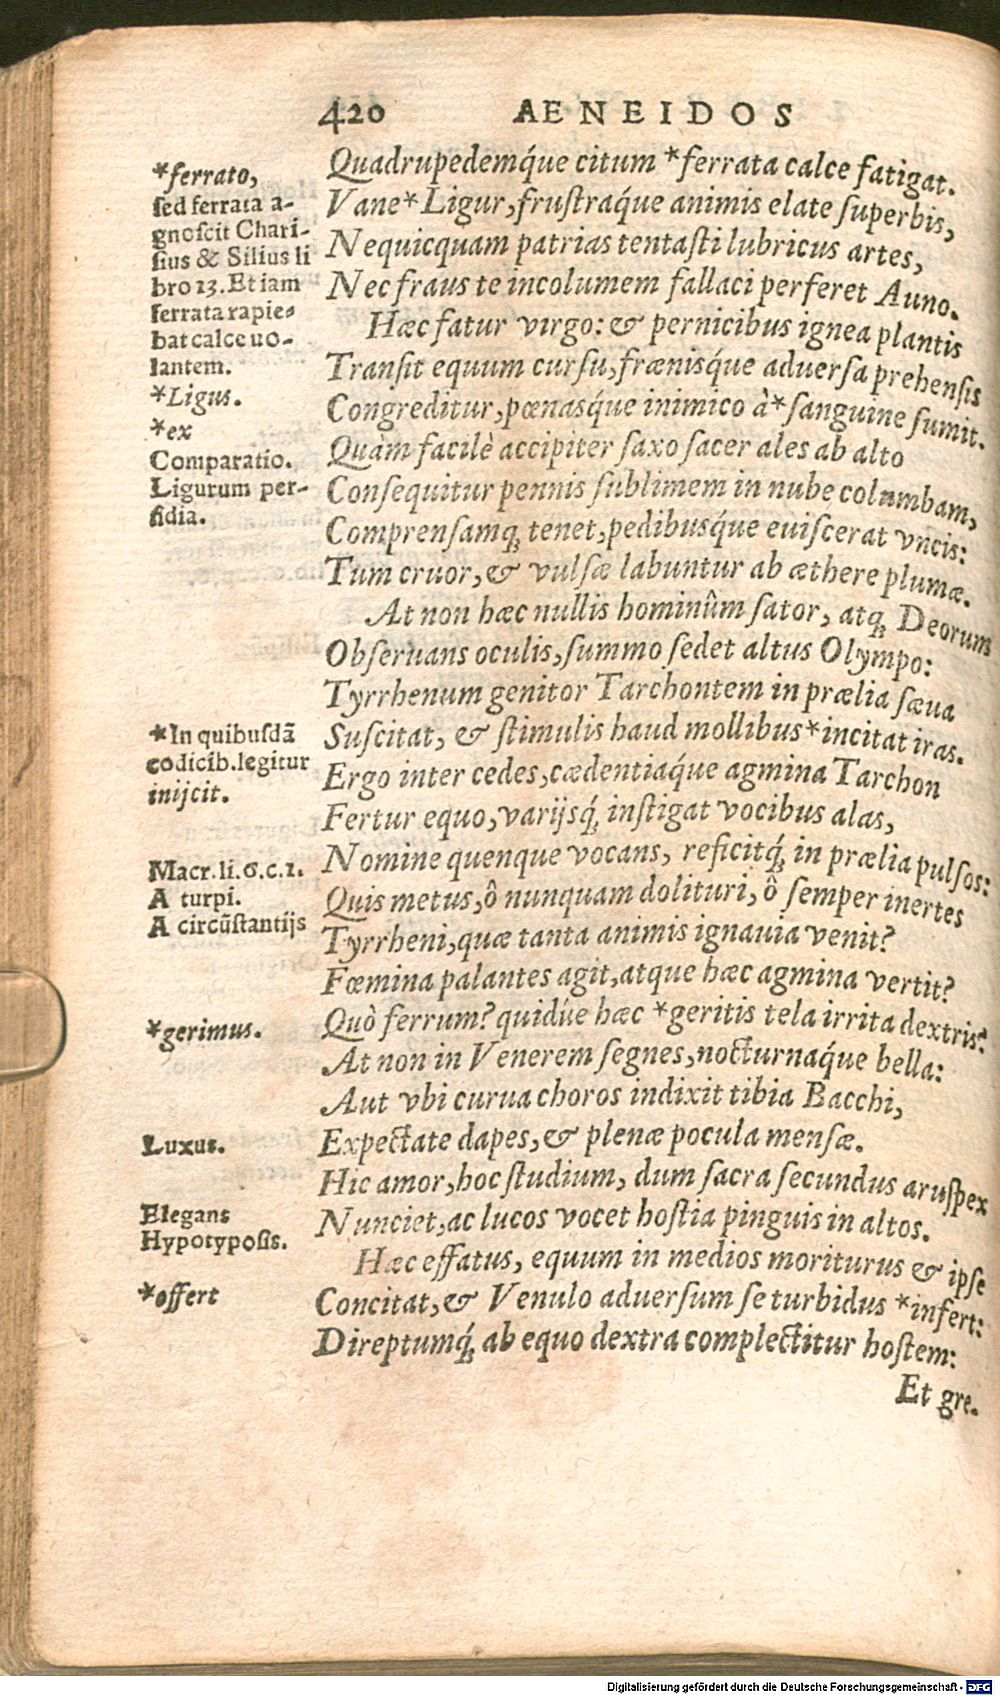 420 AENEIDOS
*ferrato,
sed ferrata a-
gnoscit Chari-
sius & Silius li
bro 13. Et iam
ferrata rapie-
bat calce uo-
lantem.
*Ligus.
*ex
Comparatio.
Ligurum per-
fidia.
*In quibusdã
codicib. legitur
inijcit.
Macr. li. 6. c. 1.
A turpi.
A circũstantijs
*gerimus.
Luxus.
Elegans
Hypotyposis.
*offert
Quadrupedemq́ue citum *ferrata calce fatigat.
Vane* Ligur, frustraq́ue animis elate superbis,
Nequicquam patrias tentasti lubricus artes,
Nec fraus te incolumem fallaci perferet Auno.
Hæc fatur virgo: & pernicibus ignea plantis
Transit equum cursu, frænisq́ue aduersa prehensis
Congreditur, pœnasq́ue inimico à *sanguine sumit.
Quàm facilè accipiter saxo sacer ales ab alto
Consequitur pennis sublimem in nube columbam,
Comprensamq; tenet, pedibusq́ue euiscerat vncis:
Tum cruor, & vulsæ labuntur ab æthere plumæ.
At non hæc nullis hominûm sator, atq; Deorum
Obseruans oculis, summo sedet altus Olympo:
Tyrrhenum genitor Tarchontem in prælia sæua
Suscitat, & stimulis haud mollibus *incitat iras.
Ergo inter cedes, cædentiaq́ue agmina Tarchon
Fertur equo, varijsq́; instigat vocibus alas,
Nomine quenque vocans, reficitq́; in prælia pulsos:
Quis metus, ô nunquam dolituri, ô semper inertes
Tyrrheni, quæ tanta animis ignauia venit?
Fœmina palantes agit, atque hæc agmina vertit?
Quò ferrum? quidúe hæc *geritis tela irrita dextris?
At non in Venerem segnes, nocturnaq́ue bella:
Aut vbi curua choros indixit tibia Bacchi,
Expectate dapes, & plenæ pocula mensæ.
Hic amor, hoc studium, dum sacra secundus aruspex
Nunciet, ac lucos vocet hostia pinguis in altos.
Hæc effatus, equum in medios moriturus & ipse
Concitat, & Venulo aduersum se turbidus *infert:
Direptumq́; ab equo dextra complectitur hostem:
Et gre.
Digitalisierung gefördert durch die Deutsche Forschungsgemeinschaft - DFG